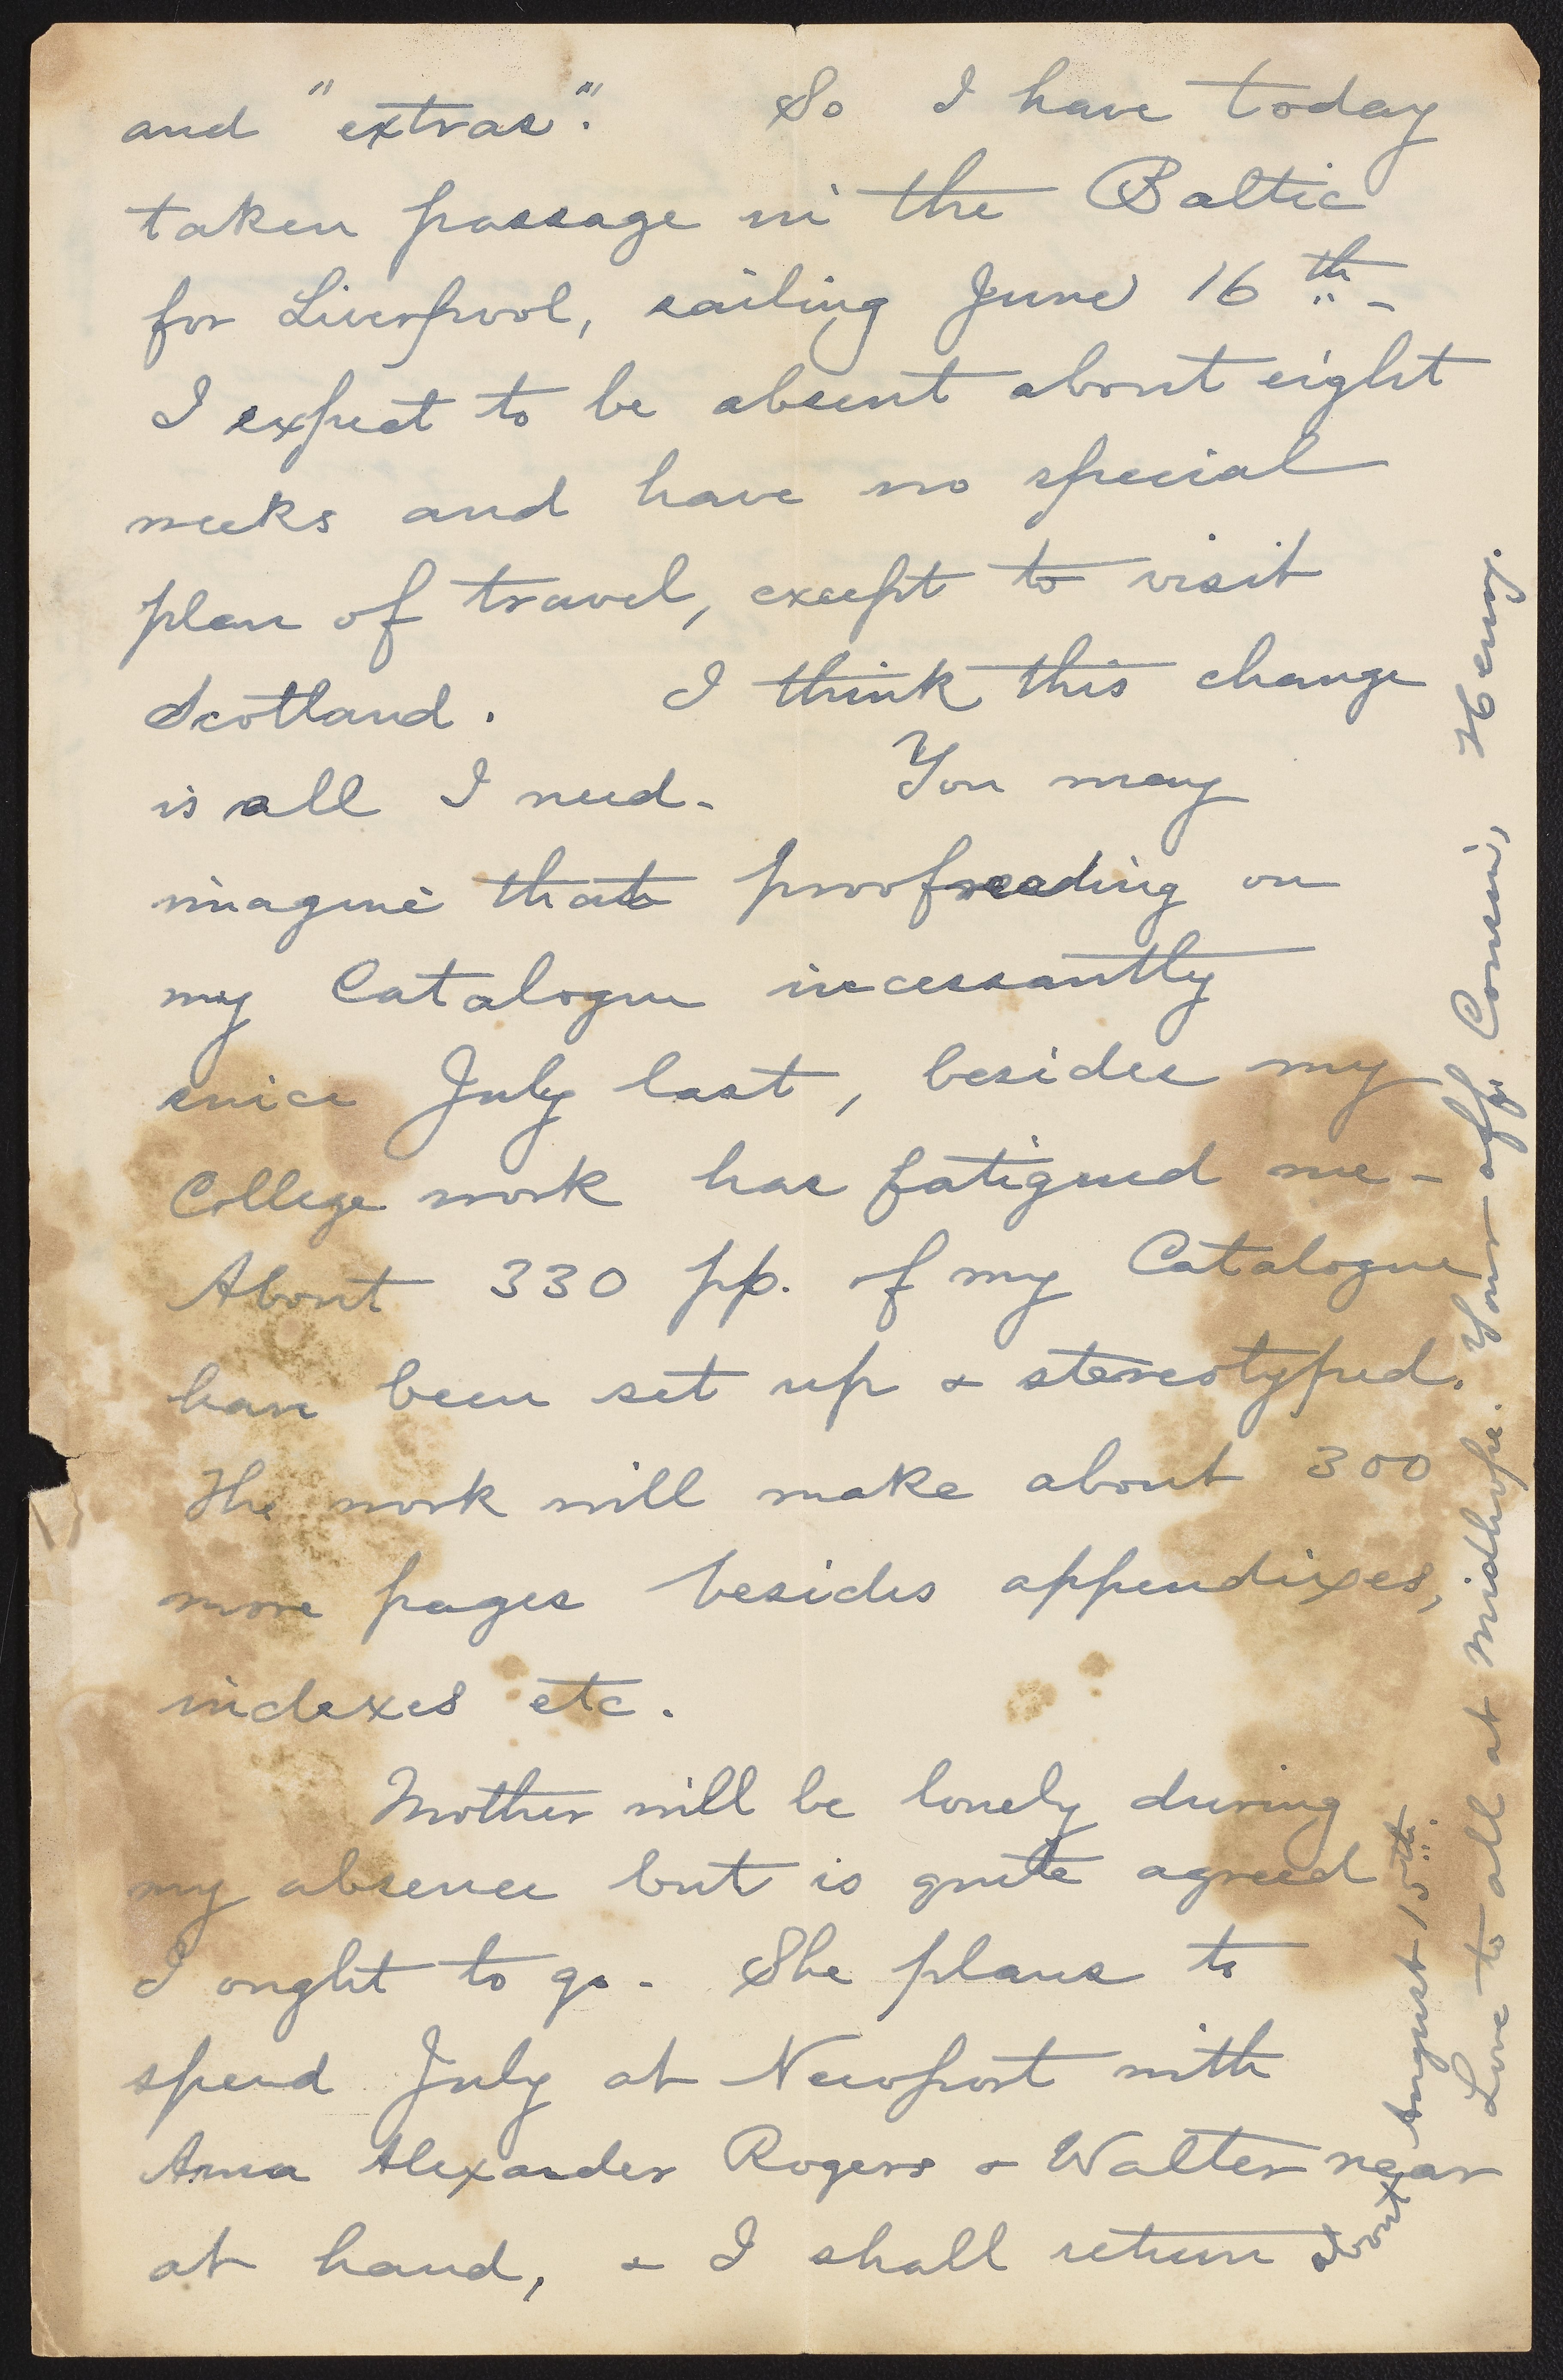 and "extras". So I have today
taken passage in the Baltic
for Liverpool, sailing June 16th -
I expect to be absent about eight
weeks and have no special
plan of travel, except to visit
Scotland. I think this change
is all I need. You may
imagine that proofreading on
my Catalogue incessantly
since July last, besides my
College work has fatigued me -
About 330 pp. of my Catalogue
have been set up & stereotyped.
The work will make about 300
more pages besides appendixes,
indexes etc.
Mother will be lonely during
my absence but is quite agreed
I ought to go. She plans to
spend July at Newport with
Anna Alexander Rogers & Walter near
at hand, & I shall return about
August 15th.
Love to all at Midhope. Your aff. Cousin, Henry.